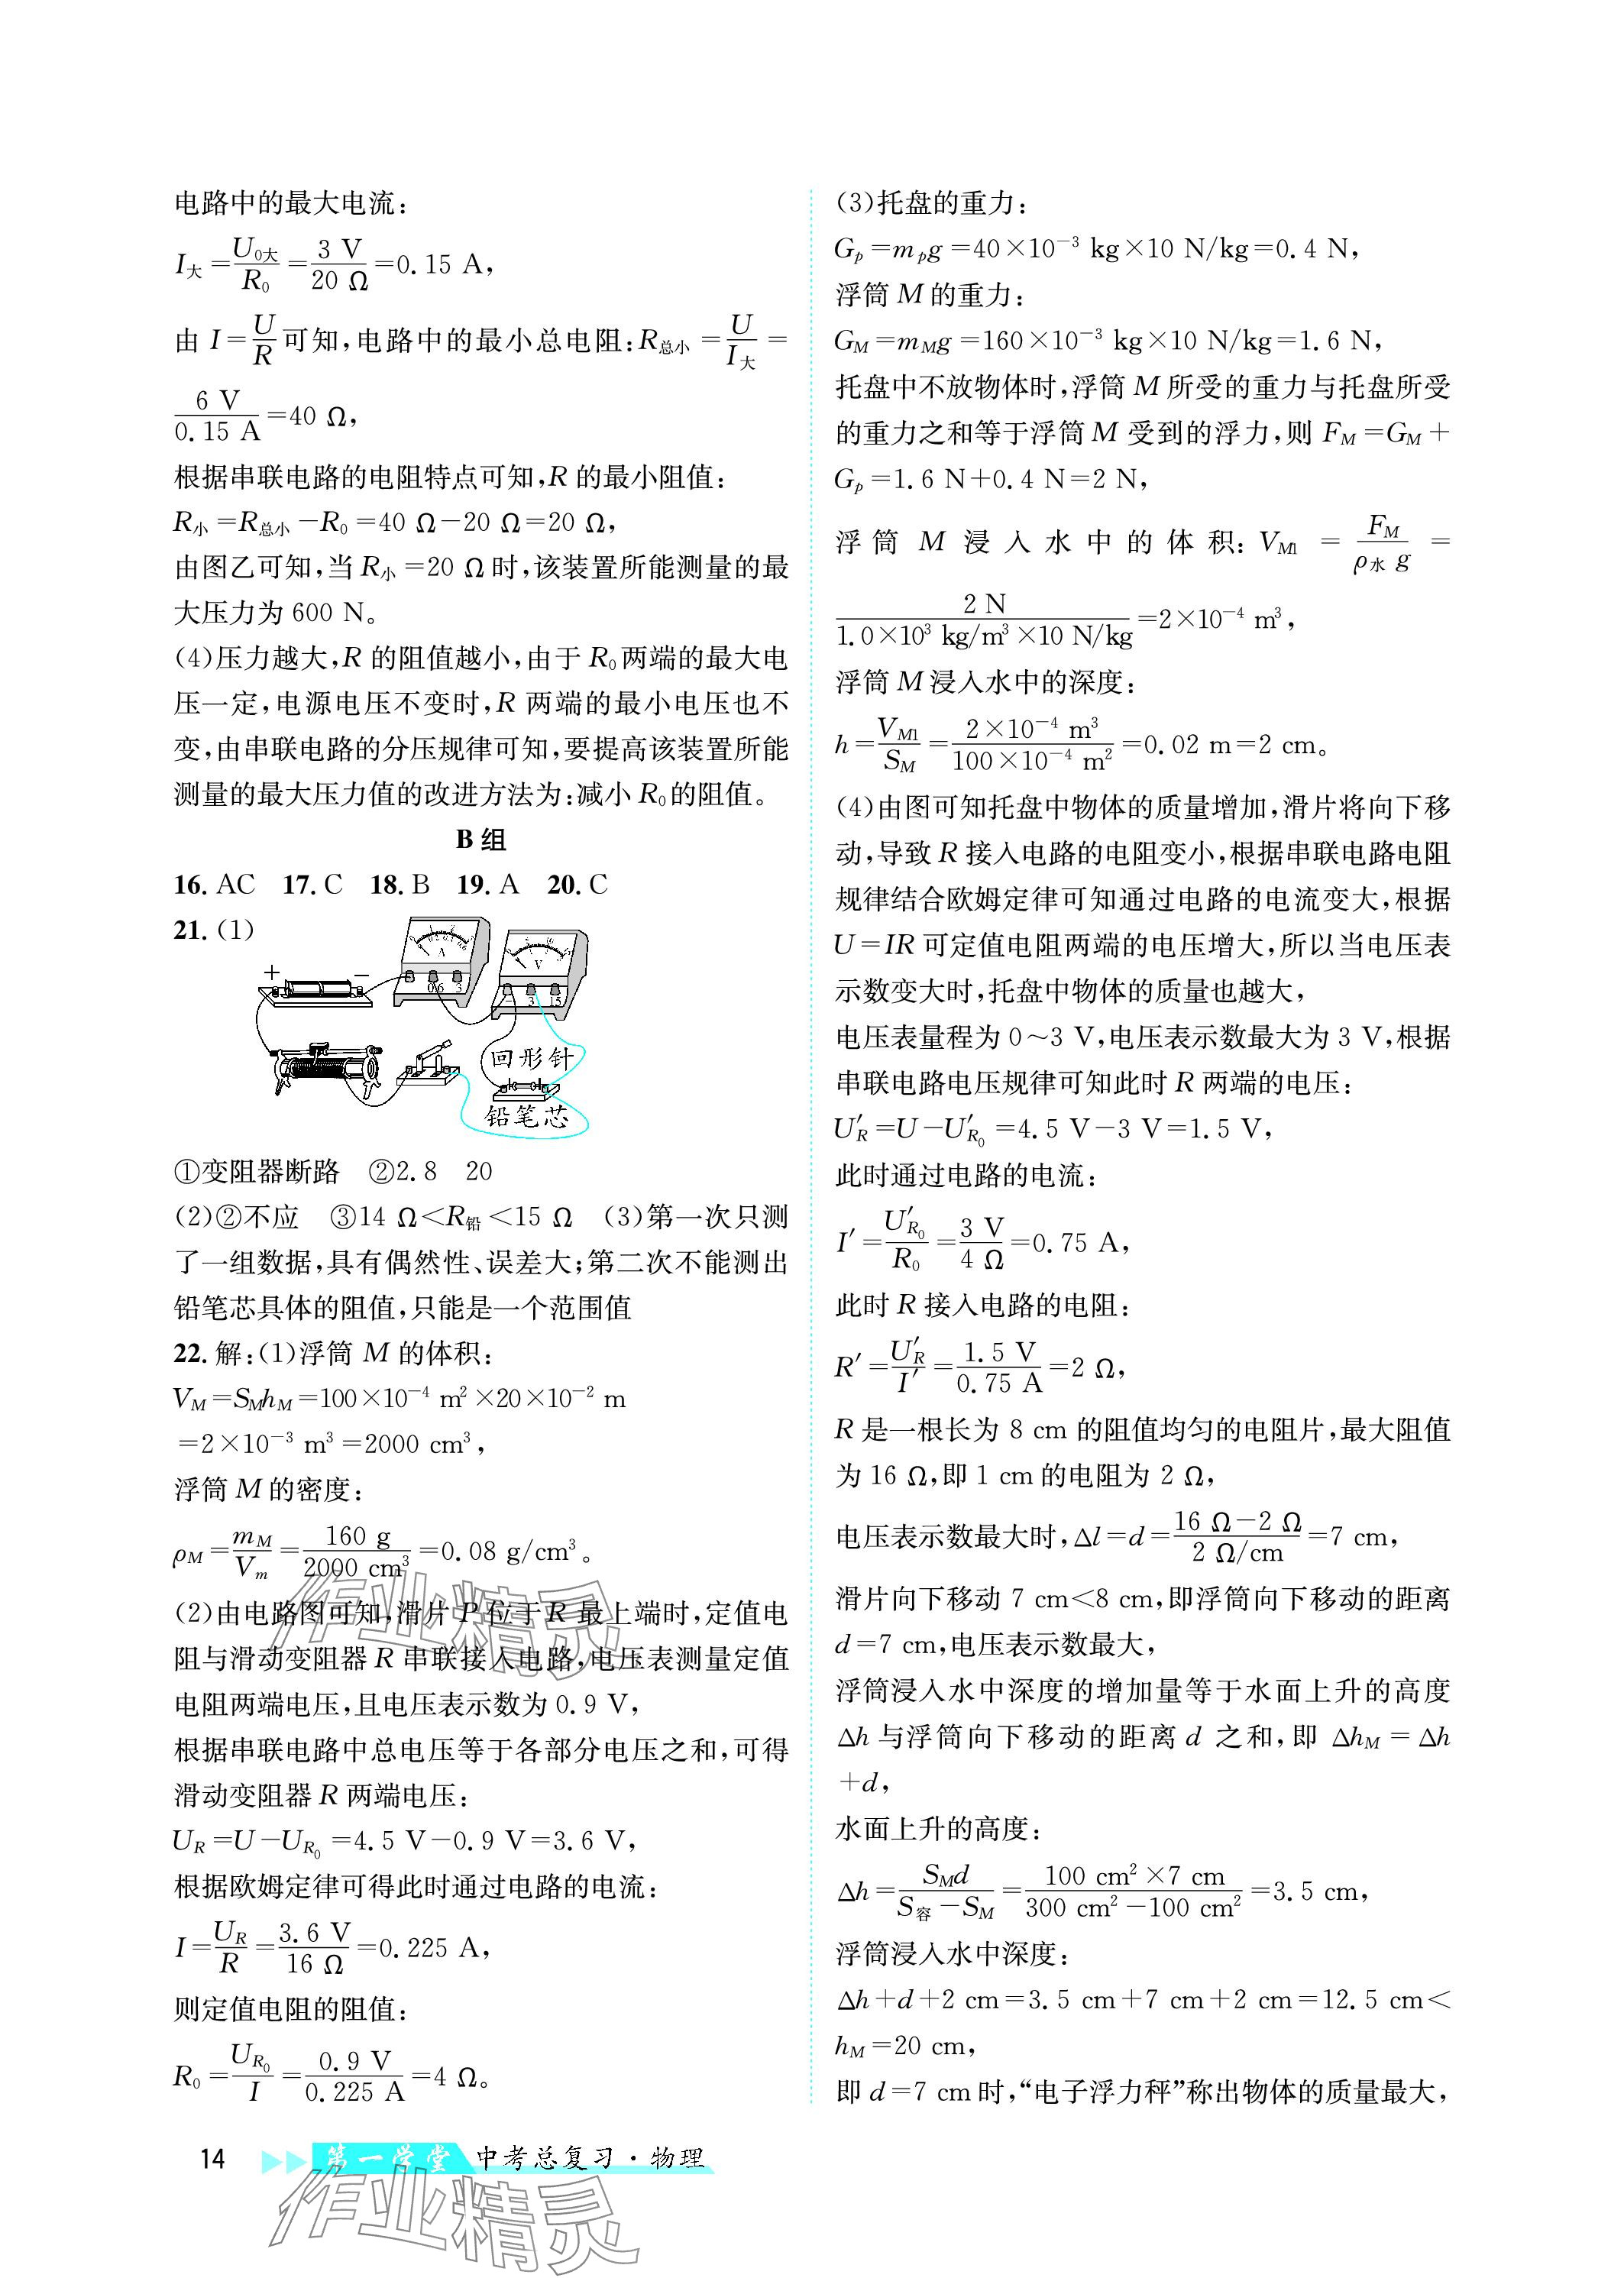 电路中的最大电流:
I大=U0大/R0=3 V/20 Ω=0.15 A,
由 I=U/R可知,电路中的最小总电阻:R总小=U/I大=
6 V/0.15 A=40 Ω,
根据串联电路的电阻特点可知,R 的最小阻值:
R小=R总小−R0=40 Ω−20 Ω=20 Ω,
由图乙可知,当 R小=20 Ω 时,该装置所能测量的最
大压力为 600 N。
(4)压力越大,R 的阻值越小,由于 R0两端的最大电
压一定,电源电压不变时,R 两端的最小电压也不
变,由串联电路的分压规律可知,要提高该装置所能
测量的最大压力值的改进方法为:减小 R0的阻值。
B 组
16. AC 17. C 18. B 19. A 20. C
21. (1)
A
0.6 3
V
− 3 15
+ −
回形针
铅笔芯
①变阻器断路 ②2.8 20
(2)②不应 ③14 Ω<R铅<15 Ω (3)第一次只测
了一组数据,具有偶然性、误差大;第二次不能测出
铅笔芯具体的阻值,只能是一个范围值
22. 解:(1)浮筒 M 的体积:
VM=SMhM=100×10⁻⁴ m²×20×10⁻² m
=2×10⁻³ m³=2000 cm³,
浮筒 M 的密度:
ρM=mM/Vm=160 g/2000 cm³=0.08 g/cm³。
(2)由电路图可知,滑片 P 位于 R 最上端时,定值电
阻与滑动变阻器 R 串联接入电路,电压表测量定值
电阻两端电压,且电压表示数为 0.9 V,
根据串联电路中总电压等于各部分电压之和,可得
滑动变阻器 R 两端电压:
UR=U−UR0=4.5 V−0.9 V=3.6 V,
根据欧姆定律可得此时通过电路的电流:
I=UR/R=3.6 V/16 Ω=0.225 A,
则定值电阻的阻值:
R0=UR0/I=0.9 V/0.225 A=4 Ω。
(3)托盘的重力:
Gp=mpg=40×10⁻³ kg×10 N/kg=0.4 N,
浮筒 M 的重力:
GM=mMg=160×10⁻³ kg×10 N/kg=1.6 N,
托盘中不放物体时,浮筒 M 所受的重力与托盘所受
的重力之和等于浮筒 M 受到的浮力,则 FM=GM+
Gp=1.6 N+0.4 N=2 N,
浮筒 M 浸入水中的体积:VM1=FM/ρ水g=
2 N/1.0×10³ kg/m³×10 N/kg=2×10⁻⁴ m³,
浮筒 M 浸入水中的深度:
h=VM1/SM=2×10⁻⁴ m³/100×10⁻⁴ m²=0.02 m=2 cm。
(4)由图可知托盘中物体的质量增加,滑片将向下移
动,导致 R 接入电路的电阻变小,根据串联电路电阻
规律结合欧姆定律可知通过电路的电流变大,根据
U=IR 可定值电阻两端的电压增大,所以当电压表
示数变大时,托盘中物体的质量也越大,
电压表量程为 0~3 V,电压表示数最大为 3 V,根据
串联电路电压规律可知此时 R 两端的电压:
U′R=U−U′R0=4.5 V−3 V=1.5 V,
此时通过电路的电流:
I′=U′R0/R0=3 V/4 Ω=0.75 A,
此时 R 接入电路的电阻:
R′=U′R/I′=1.5 V/0.75 A=2 Ω,
R 是一根长为 8 cm 的阻值均匀的电阻片,最大阻值
为 16 Ω,即 1 cm 的电阻为 2 Ω,
电压表示数最大时,Δl=d=16 Ω−2 Ω/2 Ω/cm=7 cm,
滑片向下移动 7 cm<8 cm,即浮筒向下移动的距离
d=7 cm,电压表示数最大,
浮筒浸入水中深度的增加量等于水面上升的高度
Δh 与浮筒向下移动的距离 d 之和,即 ΔhM=Δh
+d,
水面上升的高度:
Δh=SMd/S容−SM=100 cm²×7 cm/300 cm²−100 cm²=3.5 cm,
浮筒浸入水中深度:
Δh+d+2 cm=3.5 cm+7 cm+2 cm=12.5 cm<
hM=20 cm,
即 d=7 cm 时,“电子浮力秤”称出物体的质量最大,
14 第一学堂 中考总复习·物理
作业精灵
作业精灵